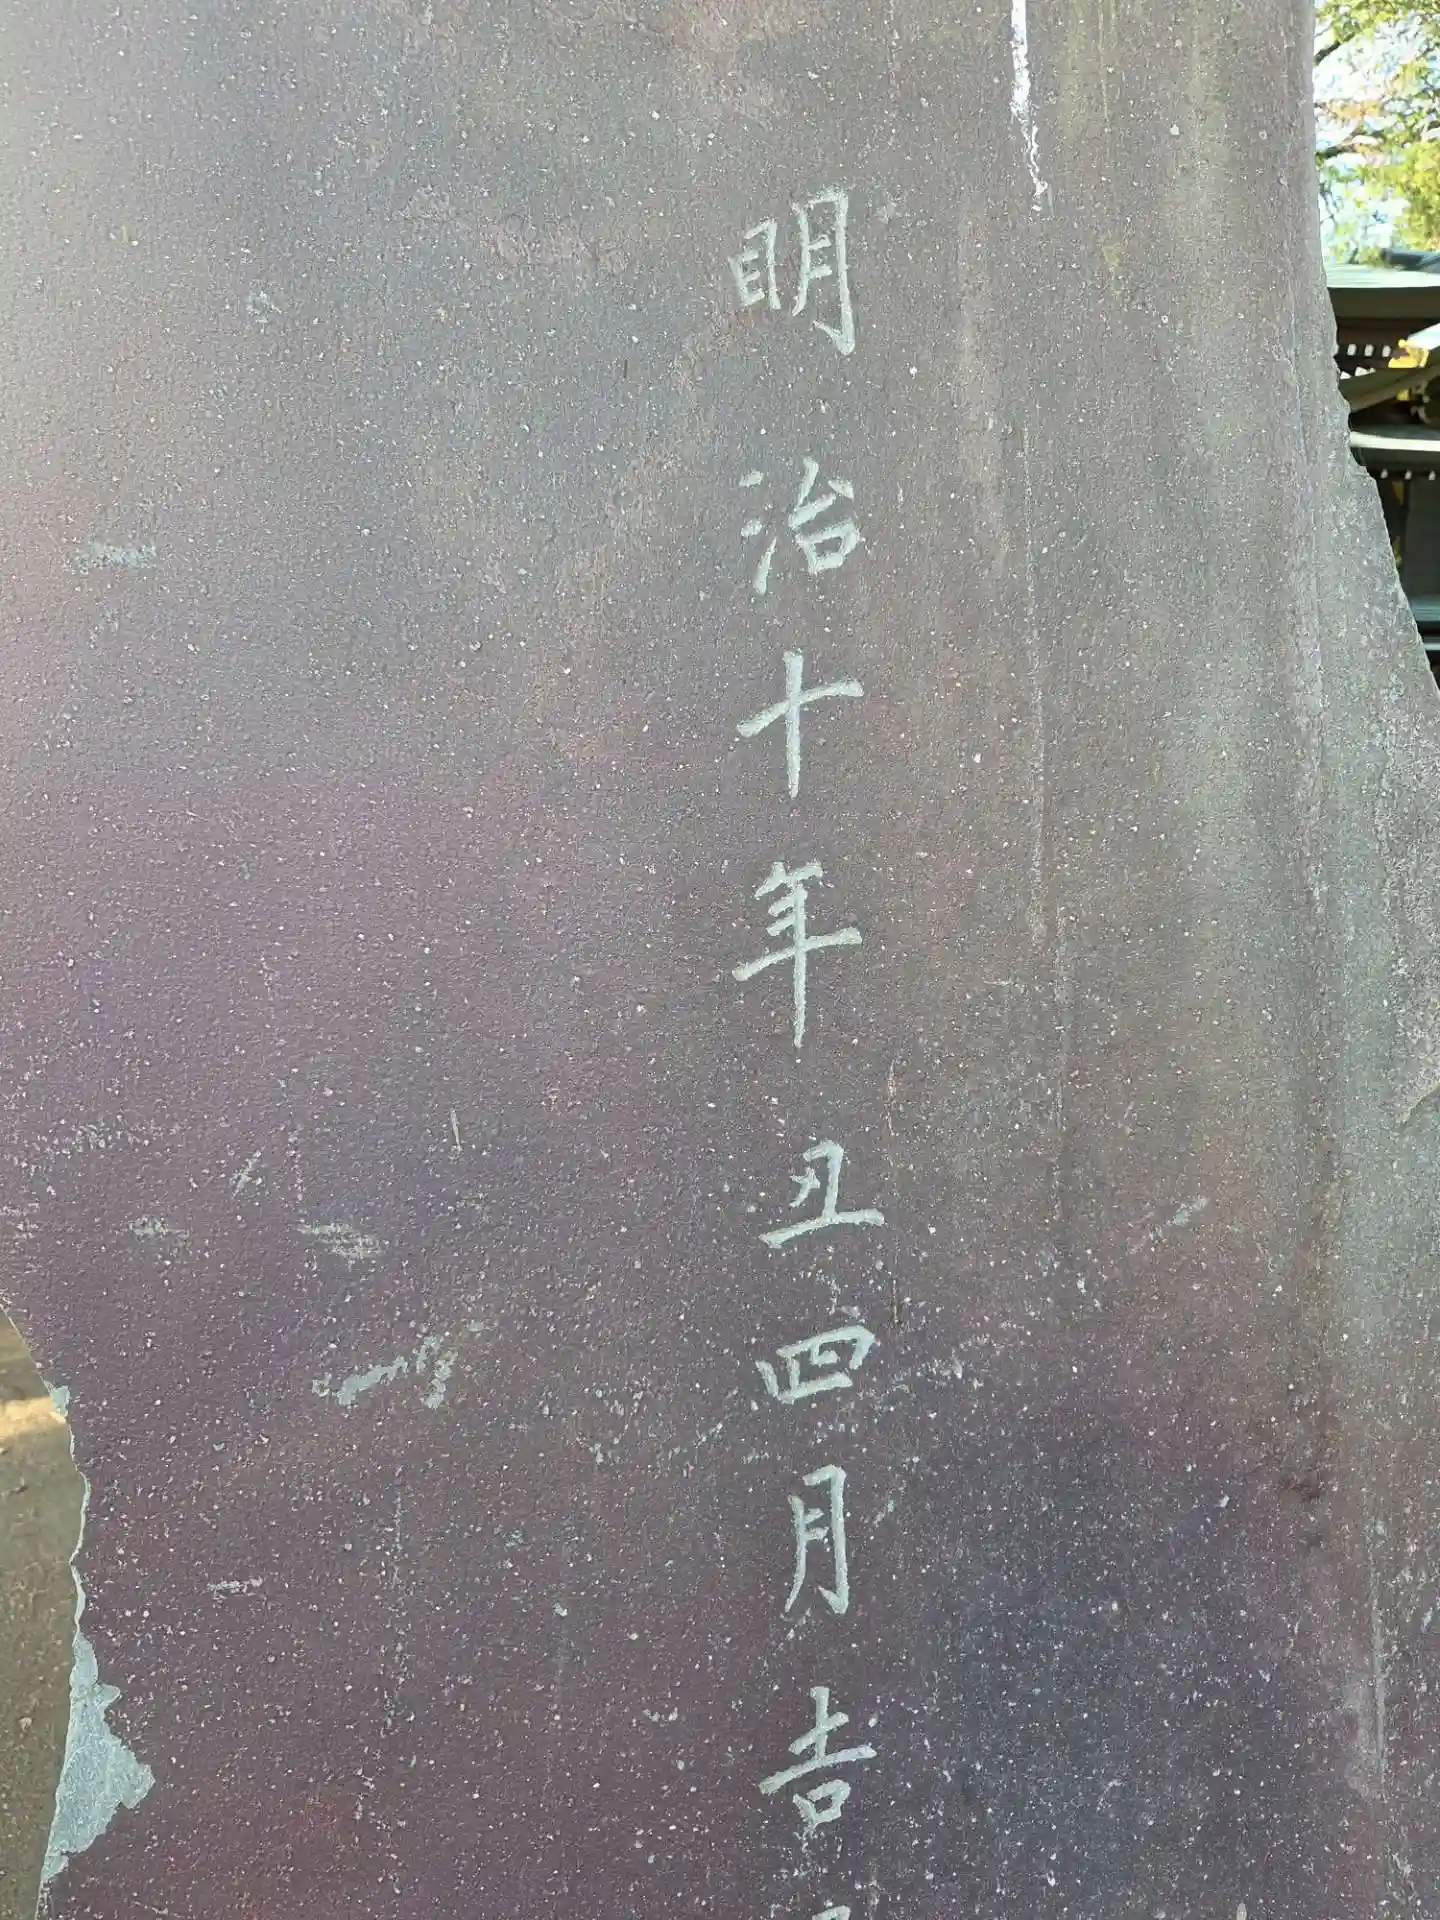 明治十年丑四月吉